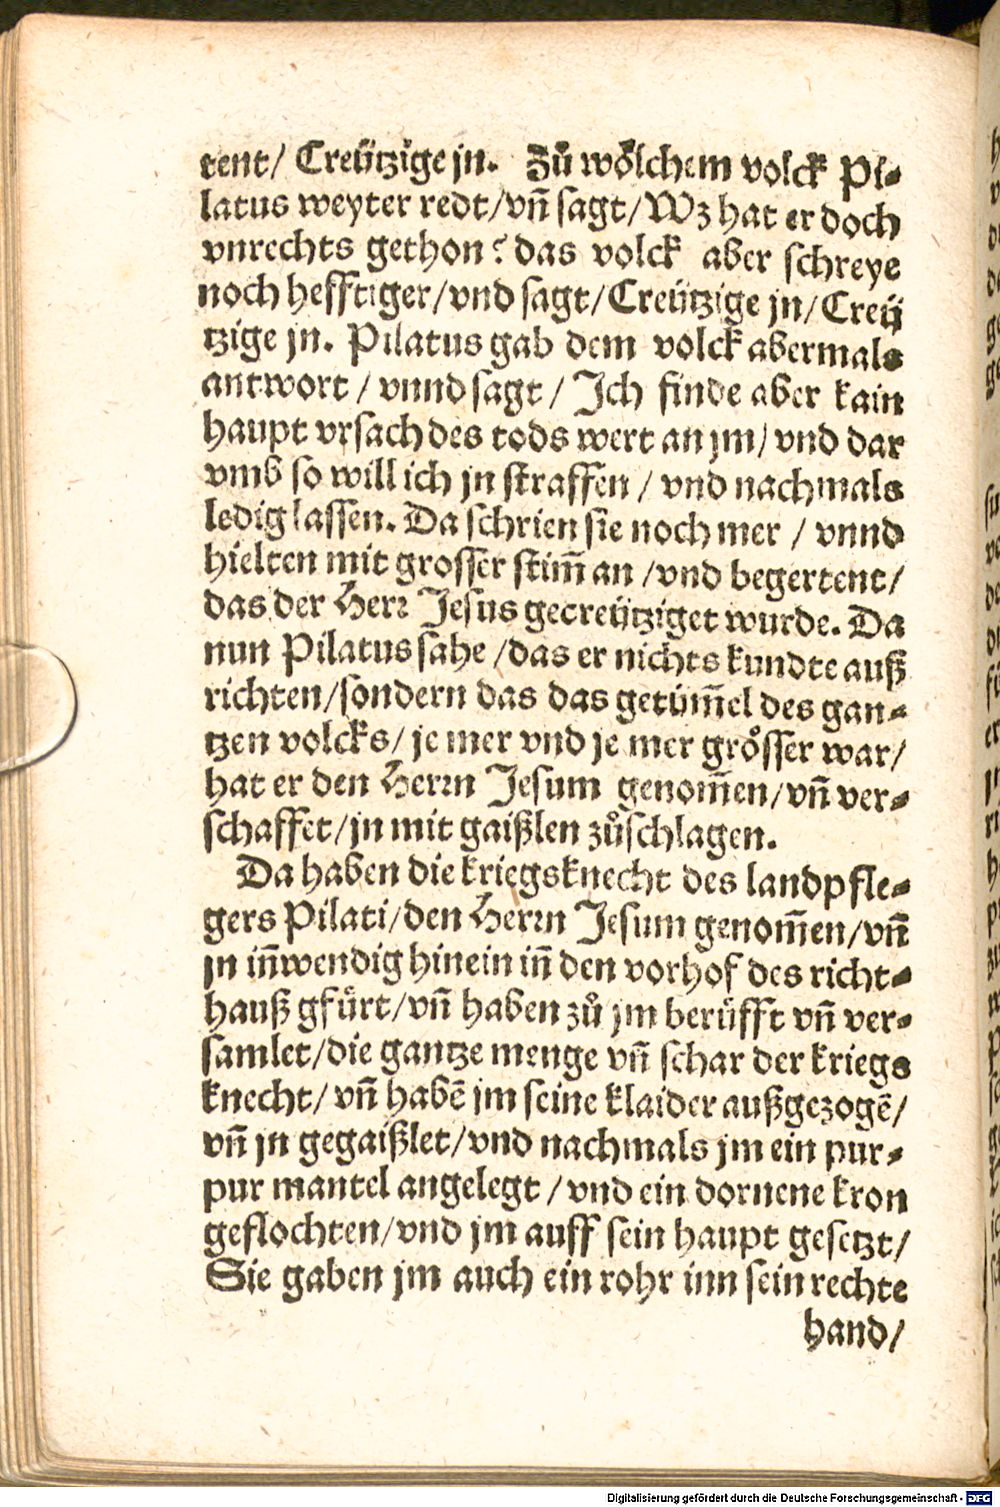 tent/ Creützige jn. Zů wölchem volck Pi-
latus weyter redt/vñ sagt/Wz hat er doch
vnrechts gethon? das volck aber schreye
noch hefftiger/vnd sagt/Creützige jn/Creü
tzige jn. Pilatus gab dem volck abermals
antwort / vnnd sagt / Ich finde aber kain
haupt vrsach des tods wert an jm/ vnd dar
vmb so will ich jn straffen / vnd nachmals
ledig lassen. Da schrien sie noch mer / vnnd
hielten mit grosser stim̃ an /vnd begertent/
das der Herr Jesus gecreütziget wurde. Da
nun Pilatus sahe /das er nichts kundte auß
richten/sondern das das getüm̃el des gan-
tzen volcks/ je mer vnd je mer grösser war/
hat er den Herrn Jesum genom̃en/vñ ver-
schaffet/jn mit gaißlen zůschlagen.
Da haben die kriegsknecht des landpfle-
gers Pilati/den Herrn Jesum genom̃en/vñ
jn iñwendig hinein iñ den vorhof des richt-
hauß gfürt/vñ haben zů jm berüfft vñ ver-
samlet/die gantze menge vñ schar der kriegs
knecht/ vñ habẽ jm seine klaider außgezogẽ/
vñ jn gegaißlet/vnd nachmals jm ein pur-
pur mantel angelegt /vnd ein dornene kron
geflochten/vnd jm auff sein haupt gesetzt/
Sie gaben jm auch ein rohr inn sein rechte
hand/
Digitalisierung gefördert durch die Deutsche Forschungsgemeinschaft - DFG